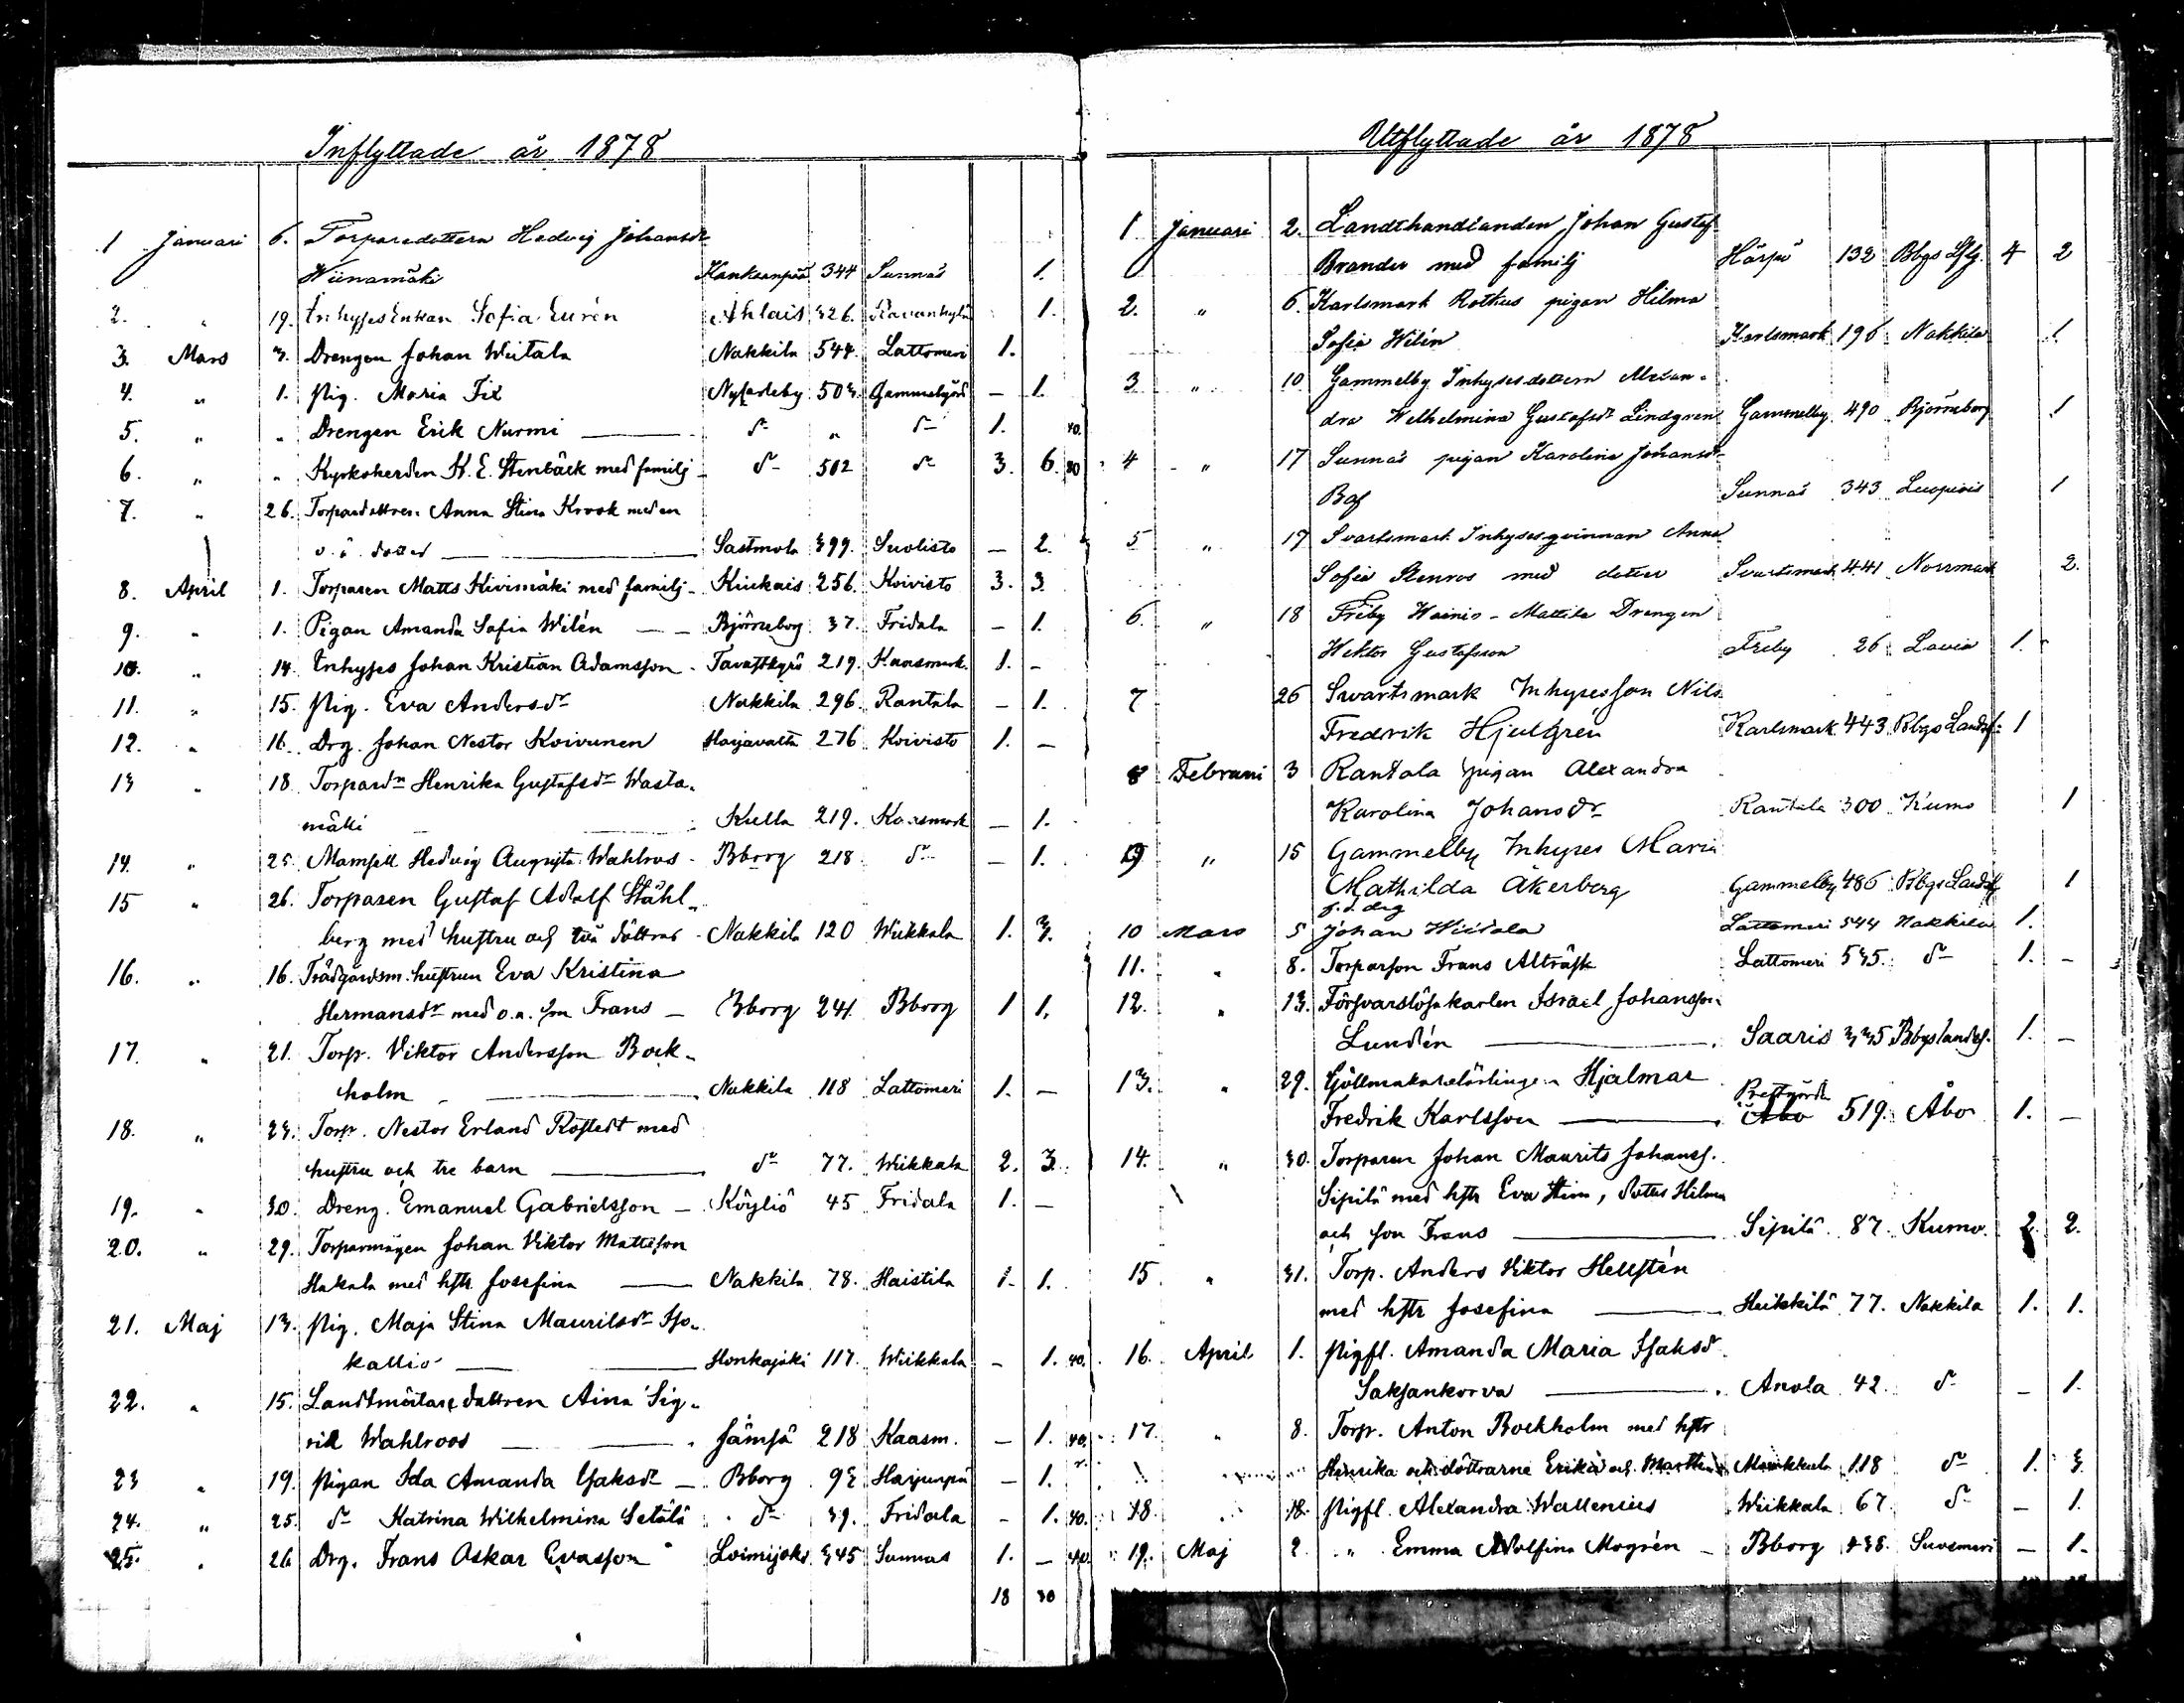 Inflyttade år 1878
1 Januari 6. Torparedottern Hedvig Johansdr
Wiinamäki Kankaanpää 344 Sunnäs 1.
2. " 19. Inhyses Enkan Sofia Eurén Ahlais 326. Ravankylä 1.
3. Mars 3. Drengen Johan Wiitala Nakkila 544. Lattomeri 1.
4. " 1. Pig. Maria Fix Nykarleby 503. Gammelgård — 1.
5. " " Drengen Erik Nurmi — dr " dr 1. 40.
6. " " Kyrkoherden K. E. Stenbäck med familj dr 502 dr 3. 6. 80
7. " 26. Torparedottren Anna Stina Krook med en
o. ä. dotter — Sastmola 399. Suolisto — 2.
8. April 1. Torparen Matts Kivimäki med familj Kiukais 256. Koivisto 3. 3.
9. " 1. Pigan Amanda Sofia Wilén — Björneborg 37. Fridala — 1.
10. " 14. Inhyses Johan Kristian Adamsson Tavastkyrö 219. Kaasmark. 1. —
11. " 15. Pig. Eva Andersdr Nakkila 296. Rantala — 1.
12. " 16. Drg. Johan Nestor Koivunen Harjavalta 276 Koivisto 1. —
13 " 18. Torpardn Henrika Gustafsdr Wasta-
mäki — Kiella 219. Kaasmark — 1.
14. " 25. Mamsell Hedvig Augusta Wahlroos Bborg 218 dr — 1.
15 " 26. Torparen Gustaf Adolf Ståhl-
berg med hustru och två döttrar Nakkila 120 Wiikkala 1. 3.
16. " 16. Trädgårdsm. hustrun Eva Kristina
Hermansdr med o.ä. son Frans — Bborg 241. Bborg 1 1.
17. " 21. Torp. Viktor Andersson Bock-
holm — Nakkila 118 Lattomeri 1. —
18. " 23. Torp. Nestor Erland Rostedt med
hustru och tre barn — dr 77. Wiikkala 2. 3.
19. " 30. Dreng. Emanuel Gabrielsson — Köyliö 45 Fridala 1. —
20. " 29. Torparmågen Johan Viktor Mattsson
Hakala med hstr Josefina — Nakkila 78. Haistila 1. 1.
21. Maj 13. Pig. Maja Stina Mauritsdr Iso-
kallio — Honkajoki 117. Wiikkala — 1. 40.
22. " 15. Landtmätare dottren Aina Sig-
rid Wahlroos — Jämsä 218 Kaasm. — 1. 40.
23 " 19. Pigan Ida Amanda Isaksdr — Bborg 93 Harjunpä — 1.
24. " 25. dr Katrina Wilhelmina Setälä dr 39. Fridala — 1. 40.
25. " 26 Drg. Frans Oskar Evasson Loimijoki 345 Sunnas 1. — 40.
18 30
Utflyttade år 1878
1 Januari 2. Landthandlanden Johan Gustaf
Brander med familj Härpö 132 Bbgs Lfsg 4 2
2. " 6. Karlsmark Rothus pigan Hilma
Sofia Wilén Karlsmark 196 Nakkila 1
3 " 10 Gammelby Inhysesdottern Alexan-
dra Wilhelmina Gustafsdr Lindgren Gammelby 490 Björneborg 1
4 " 17 Sunnäs pigan Karolina Johansdr
Sunnäs 343 Luopiois 1
5 " 17 Svartsmark Inhysesqvinnan Anna
Sofia Stenros med dotter Svartsmark 441 Norrmark 2.
6. " 18 Friby Wainio-Mattila Drengen
Viktor Gustafsson Friby 26 Lavia 1.
7 26 Svartsmark Inhyresson Nils
Fredrik Hjulgrén Karlsmark 443 Bbgs Landsf. 1
8 Februari 3 Rantala pigan Alexandra
Karolina Johansdr Rantala 300 Kumo 1
9 " 15 Gammelby Inhyses Maria
Mathilda Åkerberg Gammelby 486 Bbgs Landsf 1
f.d. drg
10 Mars 5 Johan Wiitala Lattomeri 544 Nakkila 1.
11. " 8. Torparson Frans Alträsk Lattomeri 535. dr 1. —
12. " 13. Försvarslösa karlen Israel Johansson
Lundén — Saaris 335 Bbgs landsf. 1. —
13. " 29. Gjällmakarelärlingen Hjalmar
Prestgårdn
Fredrik Karlsson — Åbo 519. Åbo 1. —
14. " 30. Torparen Johan Maurits Johanss.
Sipilä med hstr Eva Stina, dotter Hilma
och son Frans — Sipilä 87. Kumo. 2. 2.
15 " 31. Torp. Anders Viktor Hellstén
med hstr Josefina — Heikkilä 77. Nakkila 1. 1.
16. April 1. Pigfl. Amanda Maria Isaksd
Saksankorva — Anola 42. dr — 1.
17. " 8. Torp. Anton Bockholm med hstr
Henrika och döttrarne Erika och Martha 118 dr 1. 3.
18. " 18. Pigfl. Alexandra Wallenius Wiikkala 67. dr — 1.
19. Maj 2. " Emma Adolfina Mogrén — Bborg 438. Suosmeri — 1.